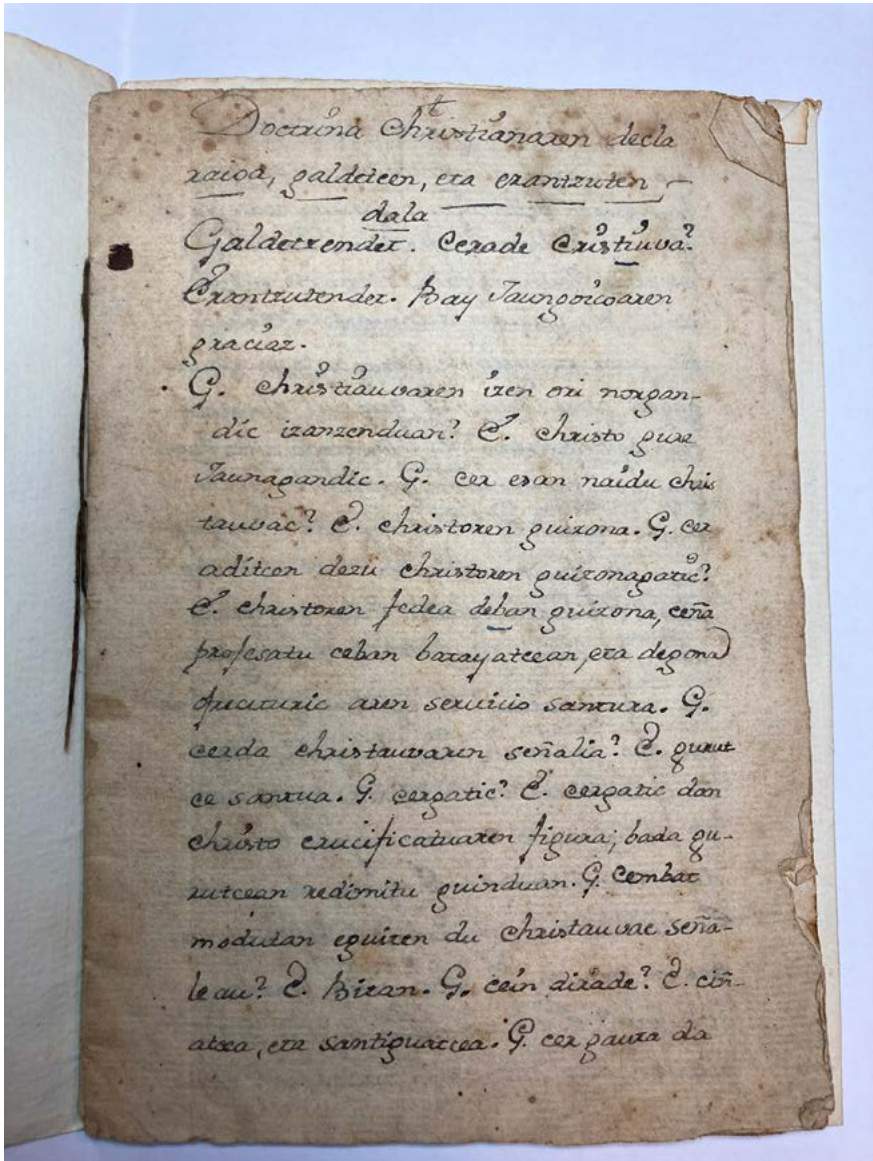 Doctrina Christianaren decla
raioa, galdeteen, eta erantzuten
dala
Galdetzendet. Cerade Cristiuva?
Erantzutendet. Bay Jaungoicoaren
graciaz.
G. christiauvaren izen ori norgan-
dic izanzenduan? E. christo gure
Jaunagandic. G. cer esan naidu chris
tauvac? E. christoren guizona. G. cer
aditcen dezu christoren guizonagatic?
E. christoren fedea deban guizona, ceña
profesatu ceban batayatcean, eta degona
ofrecituric aren servicio santura. G.
cerda christauvaren señalia? E. gurut
ce santua. G. cergatic? E. cergatic dan
christo crucificatuaren figura; bada gu-
rutcean redimitu guinduan. G. Cembat
modutan eguiten du christauvac seña-
le au? E. Bitan. G. cein dirade? E. ciñ-
atzea, eta santiguatcea. G. cer gauza da